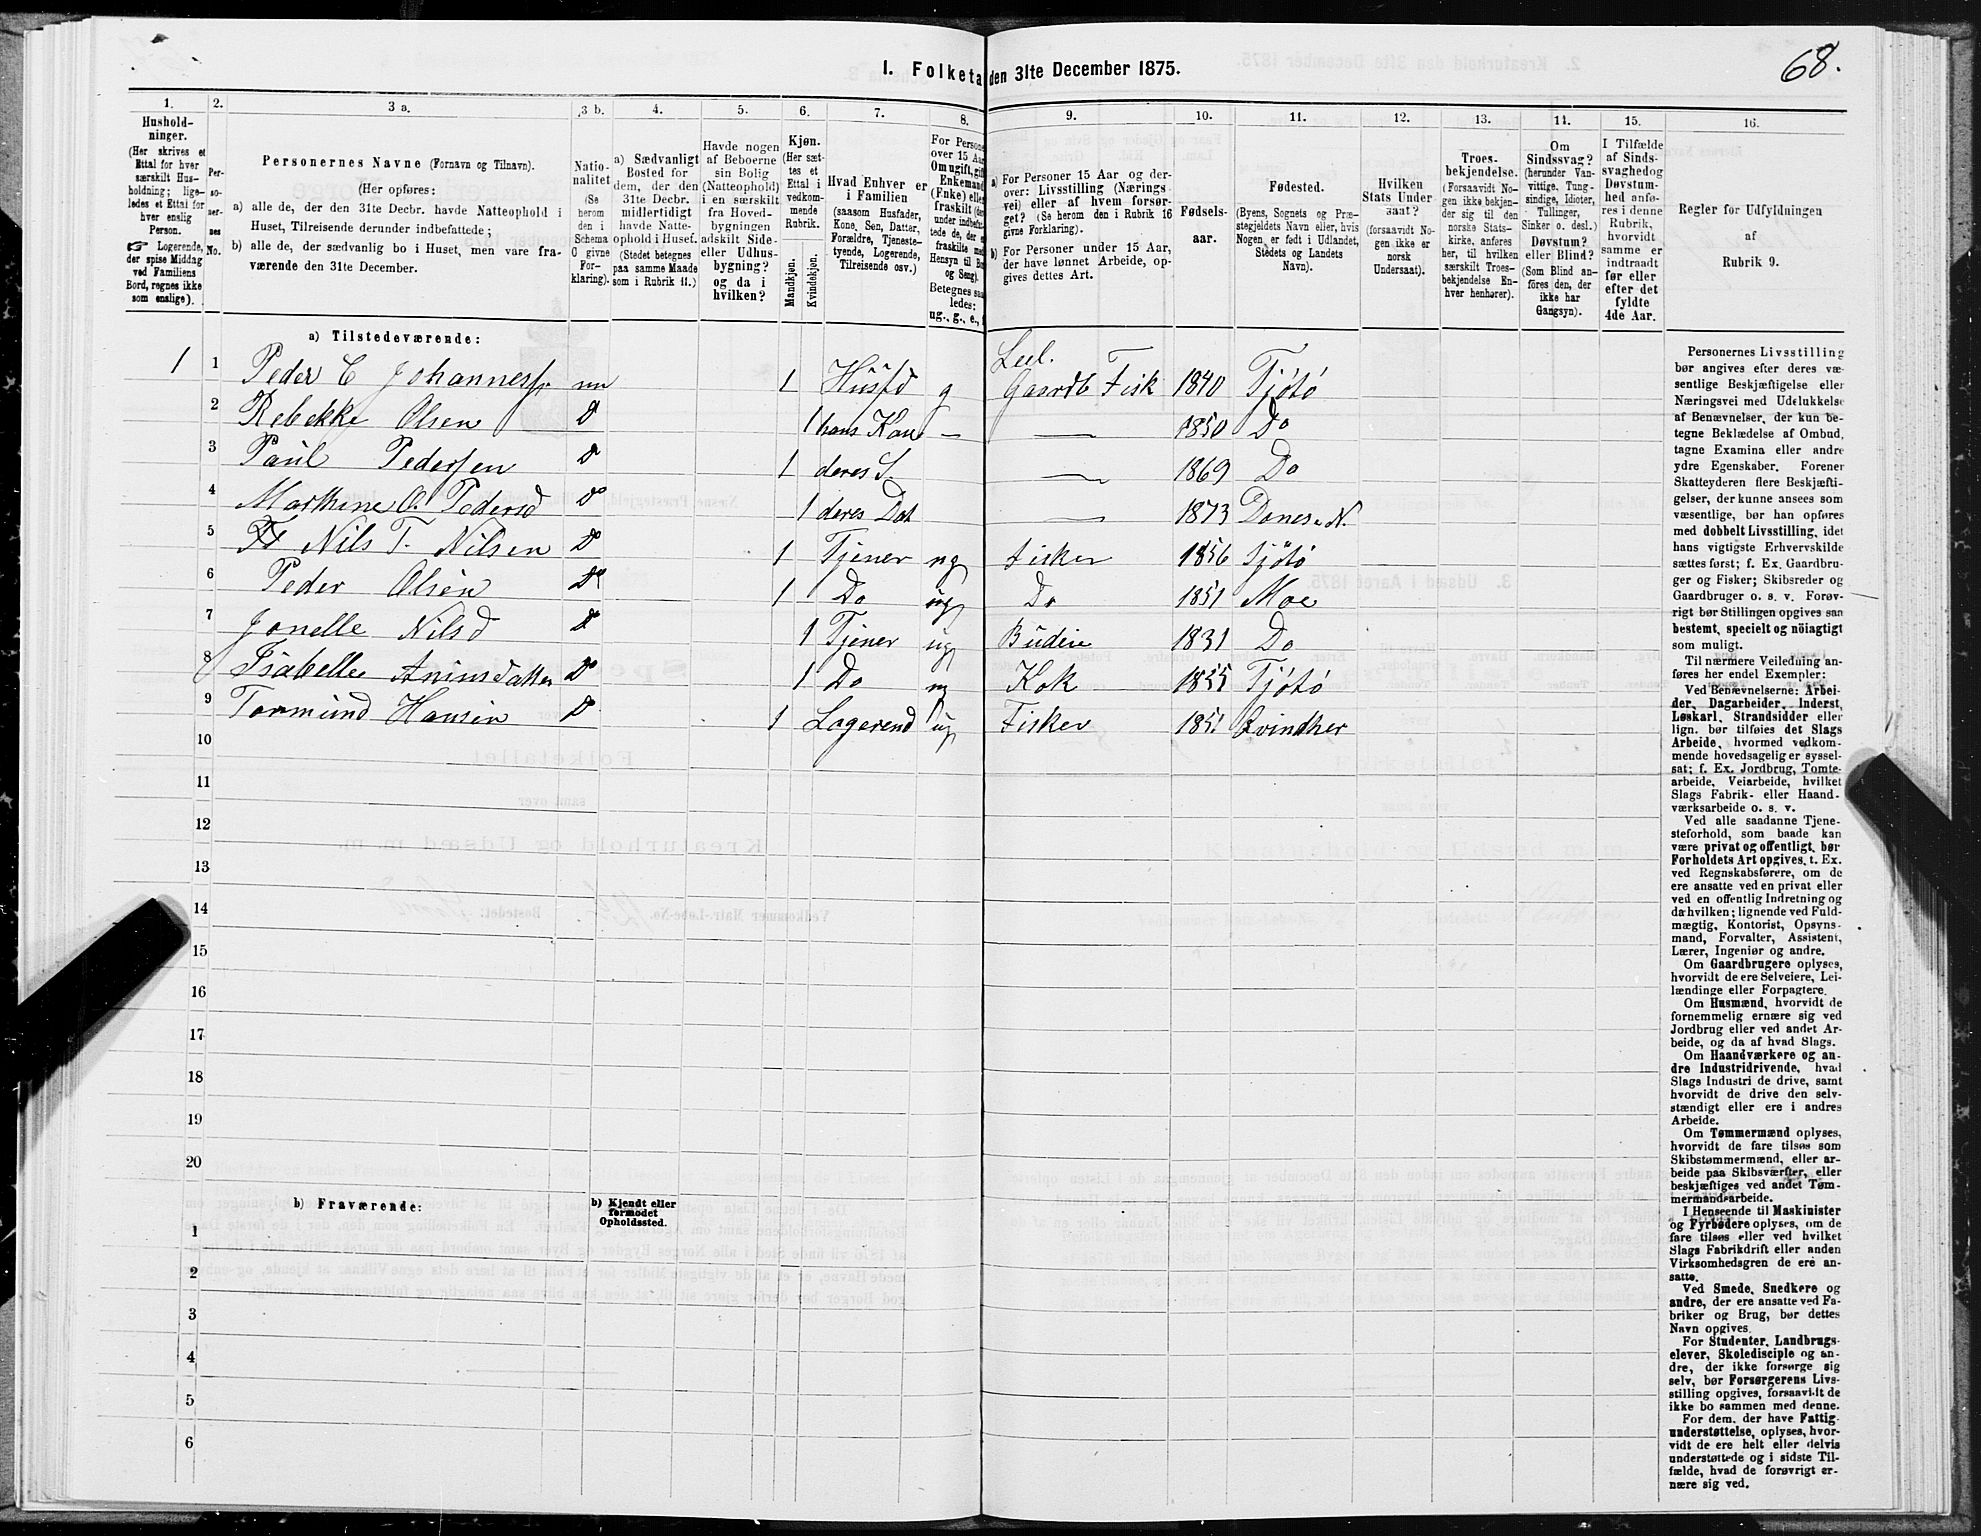 68.
I. Folketa den 31te December 1875.
1. 2. 3 a. 3 b. 4. 5. 6. 7. 8. 9. 10. 11. 12. 13. 14. 15. 16.
Personernes Navne (Fornavn og Tilnavn).
(Her opføres:
a) alle de, der den 31te Decbr. havde Natteophold i
Huset, Tilreisende derunder indbefattede;
b) alle de, der sædvanlig bo i Huset, men vare fra-
værende den 31te December.
Hushold-
ninger.
(Her skrives et
Ettal for hver
særskilt Hus-
holdning; lige-
ledes et Ettal for
hver enslig
Person.
☞ Logerende,
der spise Middag
ved Familiens
Bord, regnes ikke
som enslige).
Per-
so-
ner-
nes
No.
Natio-
nalitet
(Se
herom
den i
Schema
C givne
For-
klaring).
a) Sædvanligt
Bosted for
dem, der den
31te Decbr.
midlertidigt
havde Natte-
ophold i Huset.
(Stedet betegnes
paa samme Maade
som i Rubrik 11.)
Havde nogen
af Beboerne
sin Bolig
(Natteophold)
i en særskilt
fra Hoved-
bygningen
adskilt Side-
eller Udhus-
bygning?
og da i
hvilken?
Kjøn.
(Her sæt-
tes et
Ettal i
vedkom-
mende
Rubrik.
Mandkjøn.
Kvindekjøn.
Hvad Enhver er
i Familien
(saasom Husfader,
Kone, Søn, Datter,
Forældre, Tjeneste-
tyende, Logerende,
Tilreisende osv.)
For Persone
over 15 Aar
Om ugift, gift
Enkemand
(Enke) eller
fraskilt
Betegnes saa
ledes:
ug., g., e.,
a) For Personer 15 Aar og der-
over: Livsstilling (Nærings
vei) eller af hvem forsør-
get? (Se herom den i Rubrik 16
givne Forklaring).
b) For Personer under 15 Aar,
der have lønnet Arbeide, op-
gives dettes Art.
Fødsels-
aar.
Fødested.
(Byens, Sognets og Præ-
stegjeldets Navn eller, hvis
Nogen er født i Udlandet,
Stedets og Landets
Navn).
Hvilken
Stats Under
saat?
(forsaavidt No-
gen ikke er
norsk
Undersaat).
Troes-
bekjendelse.
(Forsaavidt No-
gen ikke bekjen-
der sig til den
norske Stats-
kirke, anføres
her, til hvilken
særskilt Troes-
bekjendelse En-
hver henhører).
Om
Sindssvag?
(herunder Van-
vittige, Tung-
sindige, Idioter,
Tullinger,
Sinker o. desl.)
Døvstum?
eller Blind?
(Som Blind an-
føres den, der
ikke har
Gangsyn).
I Tilfælde
af Sinds-
svaghed og
Døvstum-
hed anfø-
res i denne
Rubrik,
hvorvidt
samme er
indtraadt
før eller
efter det
fyldte
4de Aar.
Regler for Udfyldningen
af
Rubrik 9.
a) Tilstedeværende:
Leel.
1 1 Peder C Johanness nn 1 Husfd g Gaardb Fisk 1840 Tjötö
2 Rebekke Olsen D 1 hans Kone — — 1850 Do
3 Paul Pedersen D 1 deres S. — 1869 Do
4 Marthine O. Pedersd D 1 deres Dat — 1873 Dones N.
5 Nils T. Nilsen D 1 Tjener ug Fisker 1856 Tjötö
6 Peder Olsen D 1 Do ug Do 1851 Moe
7 Jonelle Nilsd D 1 Tjener ug Büdeie 1831 Do
8 Isabelle D 1 Do ug Kok 1855 Tjötö
9 Tormund Hansen D 1 Logerend ug Fisker 1851 Qvindher
10
11
12
13
14
15
16
17
18
19
20
b) Fraværende:
b) Kjendt eller
formodet
Opholdssted.
1
2
3
4
5
6
Personernes Livsstilling
bør angives efter deres væ-
sentlige Beskjæftigelse eller
Næringsvei med Udelukkelse
af Benævnelser, der kun be-
tegne Beklædelse af Ombud,
tagne Examina eller andre
ydre Egenskaber. Forener
Skatteyderen flere Beskjæfti-
gelser, der kunne ansees som
væsentlige, bør han opføres
med dobbelt Livsstilling, idet
hans vigtigste Erhvervskilde
sættes først; f. Ex. Gaardbru-
ger og Fisker; Skibsreder og
Gaardbruger o. s. v. Forøv-
rigt bør Stillingen opgives saa
bestemt, specielt og nöiagtigt
som muligt.
Til nærmere Veiledning an-
føres her endel Exempler:
Ved Benævnelserne: Arbei-
der, Dagarbeider, Inderst,
Løskarl, Strandsidder eller
lign. bør tilføies det Slags
Arbeide, hvormed vedkom-
mende hovedsagelig er syssel-
sat; f. Ex. Jordbrug, Tomte-
arbeide, Veiarbeide, hvilket
Slags Fabrik- eller Haand-
værksarbeide o. s. v.
Ved alle saadanne Tjene-
steforhold, som baade kan
være privat og offentligt, bør
Forholdets Art opgives, t. Ex.
ved Regnskabsførere, om de
ere ansatte ved en privat eller
ved en offentlig Indretning og
da hvilken; lignende ved Fuld-
mægtig, Kontorist, Opsyns-
mand, Forvalter, Assistent,
Lærer, Ingeniør og andre.
Om Gaardbrugere oplyses,
hvorvidt de ere Selveiere, Lei-
lændinge eller Forpagtere.
Om Husmænd, hvorvidt de
fornemmelig ernære sig ved
Jordbrug eller ved andet Ar-
beide, og da af hvad Slags.
Om Haandværkere og an-
dre Industridrivende, hvad
Slags Industri de drive, samt
hvorvidt de drive den selv-
stændigt eller ere i andres
Arbeide.
Om Tømmermænd oplyses,
hvorvidt de fare tilsøs som
Skibstømmermænd, eller ar-
beide paa Skibsværfter, eller
beskjæftiges ved andet Tøm-
mermandsarbeide.
I Henseende til Maskinister
og Fyrbødere oplyses, om de
fare tilsøs eller ved hvilket
Slags Fabrikdrift eller anden
Virksomhedsgren de ere an-
satte.
Ved Smede, Snedkere og
andre, der ere ansatte ved Fa-
briker og Brug, bør dettes
Navn opgives.
For Studenter, Landbrugs-
elever, Skoledisciple og an-
dre, der ikke forsørge sig
selv, bør Forsørgerens Livs-
stilling opgives, forsaavidt de
ikke bo sammen med denne.
For dem, der have Fattig-
understøttelse, oplyses, hvor-
vidt de ere helt eller delvis
understøttede og i sidste Til-
fælde, hvad de forøvrigt er-
nære sig ved.